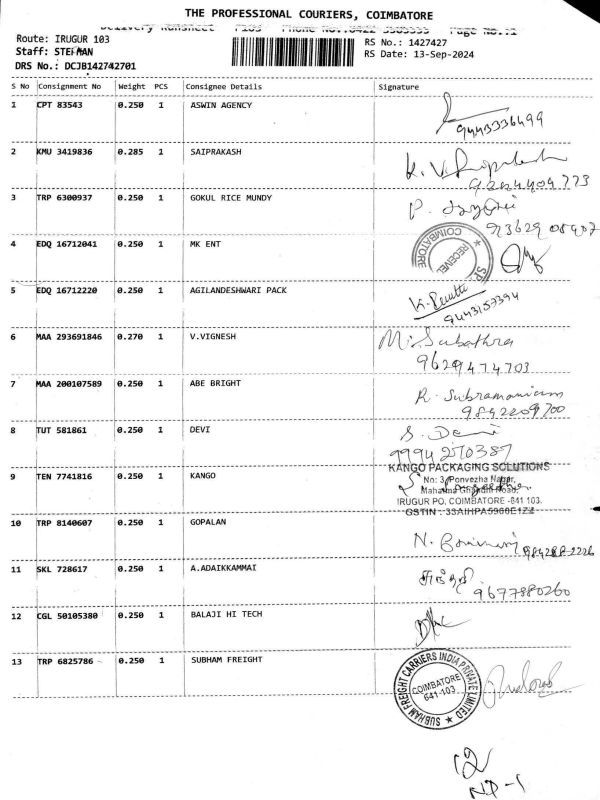 THE PROFESSIONAL COURIERS, COIMBATORE
Delivery Runsheet
Route: IRUGUR 103
Staff: STEFHAN
DRS No.: DCJB142742701
RS No.: 1427427
RS Date: 13-Sep-2024
S No Consignment No Weight PCS Consignee Details Signature
1 CPT 83543 0.250 1 ASWIN AGENCY
9443336499
2 KMU 3419836 0.285 1 SAIPRAKASH
3 TRP 6300937 0.250 1 GOKUL RICE MUNDY
4 EDQ 16712041 0.250 1 MK ENT
COIMBATORE
RECEIVED
5 EDQ 16712220 0.250 1 AGILANDESHWARI PACK
9443157394
6 MAA 293691846 0.270 1 V.VIGNESH
M. Subathra
9629474703
7 MAA 200107589 0.250 1 ABE BRIGHT
R. Subramaniam
9842209700
8 TUT 581861 0.250 1 DEVI
S. Devi
9994270387
9 TEN 7741816 0.250 1 KANGO
KANGO PACKAGING SOLUTIONS
No: 3, Ponvezha Nagar,
Mahatma Ghandhi Road,
IRUGUR PO, COIMBATORE -641 103.
10 TRP 8140607 0.250 1 GOPALAN
11 SKL 728617 0.250 1 A.ADAIKKAMMAI
9677880260
12 CGL 50105380 0.250 1 BALAJI HI TECH
13 TRP 6825786 0.250 1 SUBHAM FREIGHT
SUBHAM FREIGHT CARRIERS INDIA PRIVATE LIMITED
COIMBATORE
641-103
12